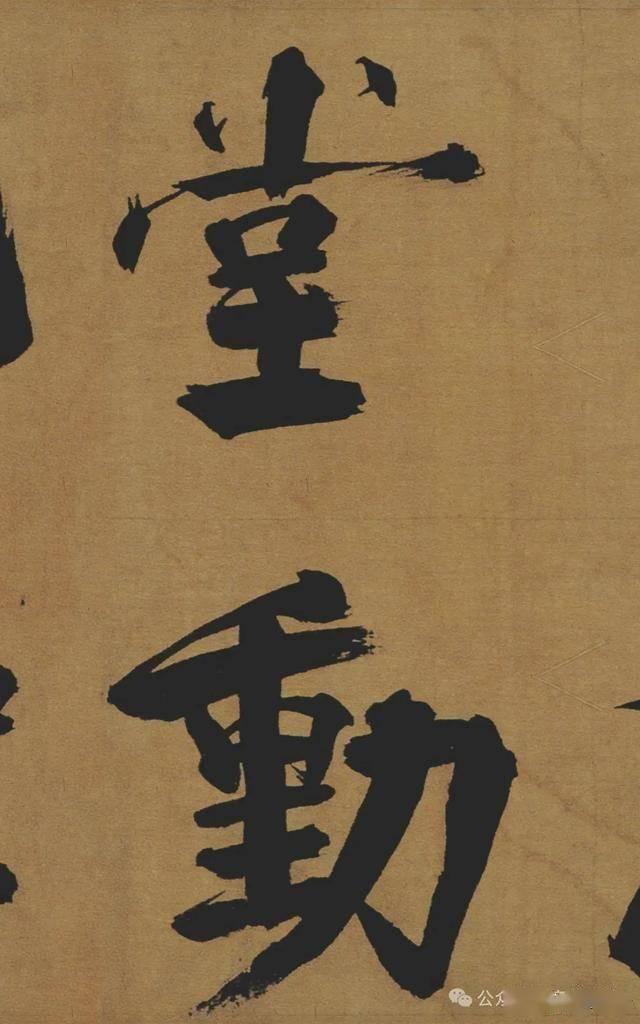 堂
動
公众